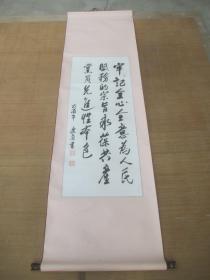 牢记全心全意為人民
服務的宗旨永葆共產
黨員先進性本色